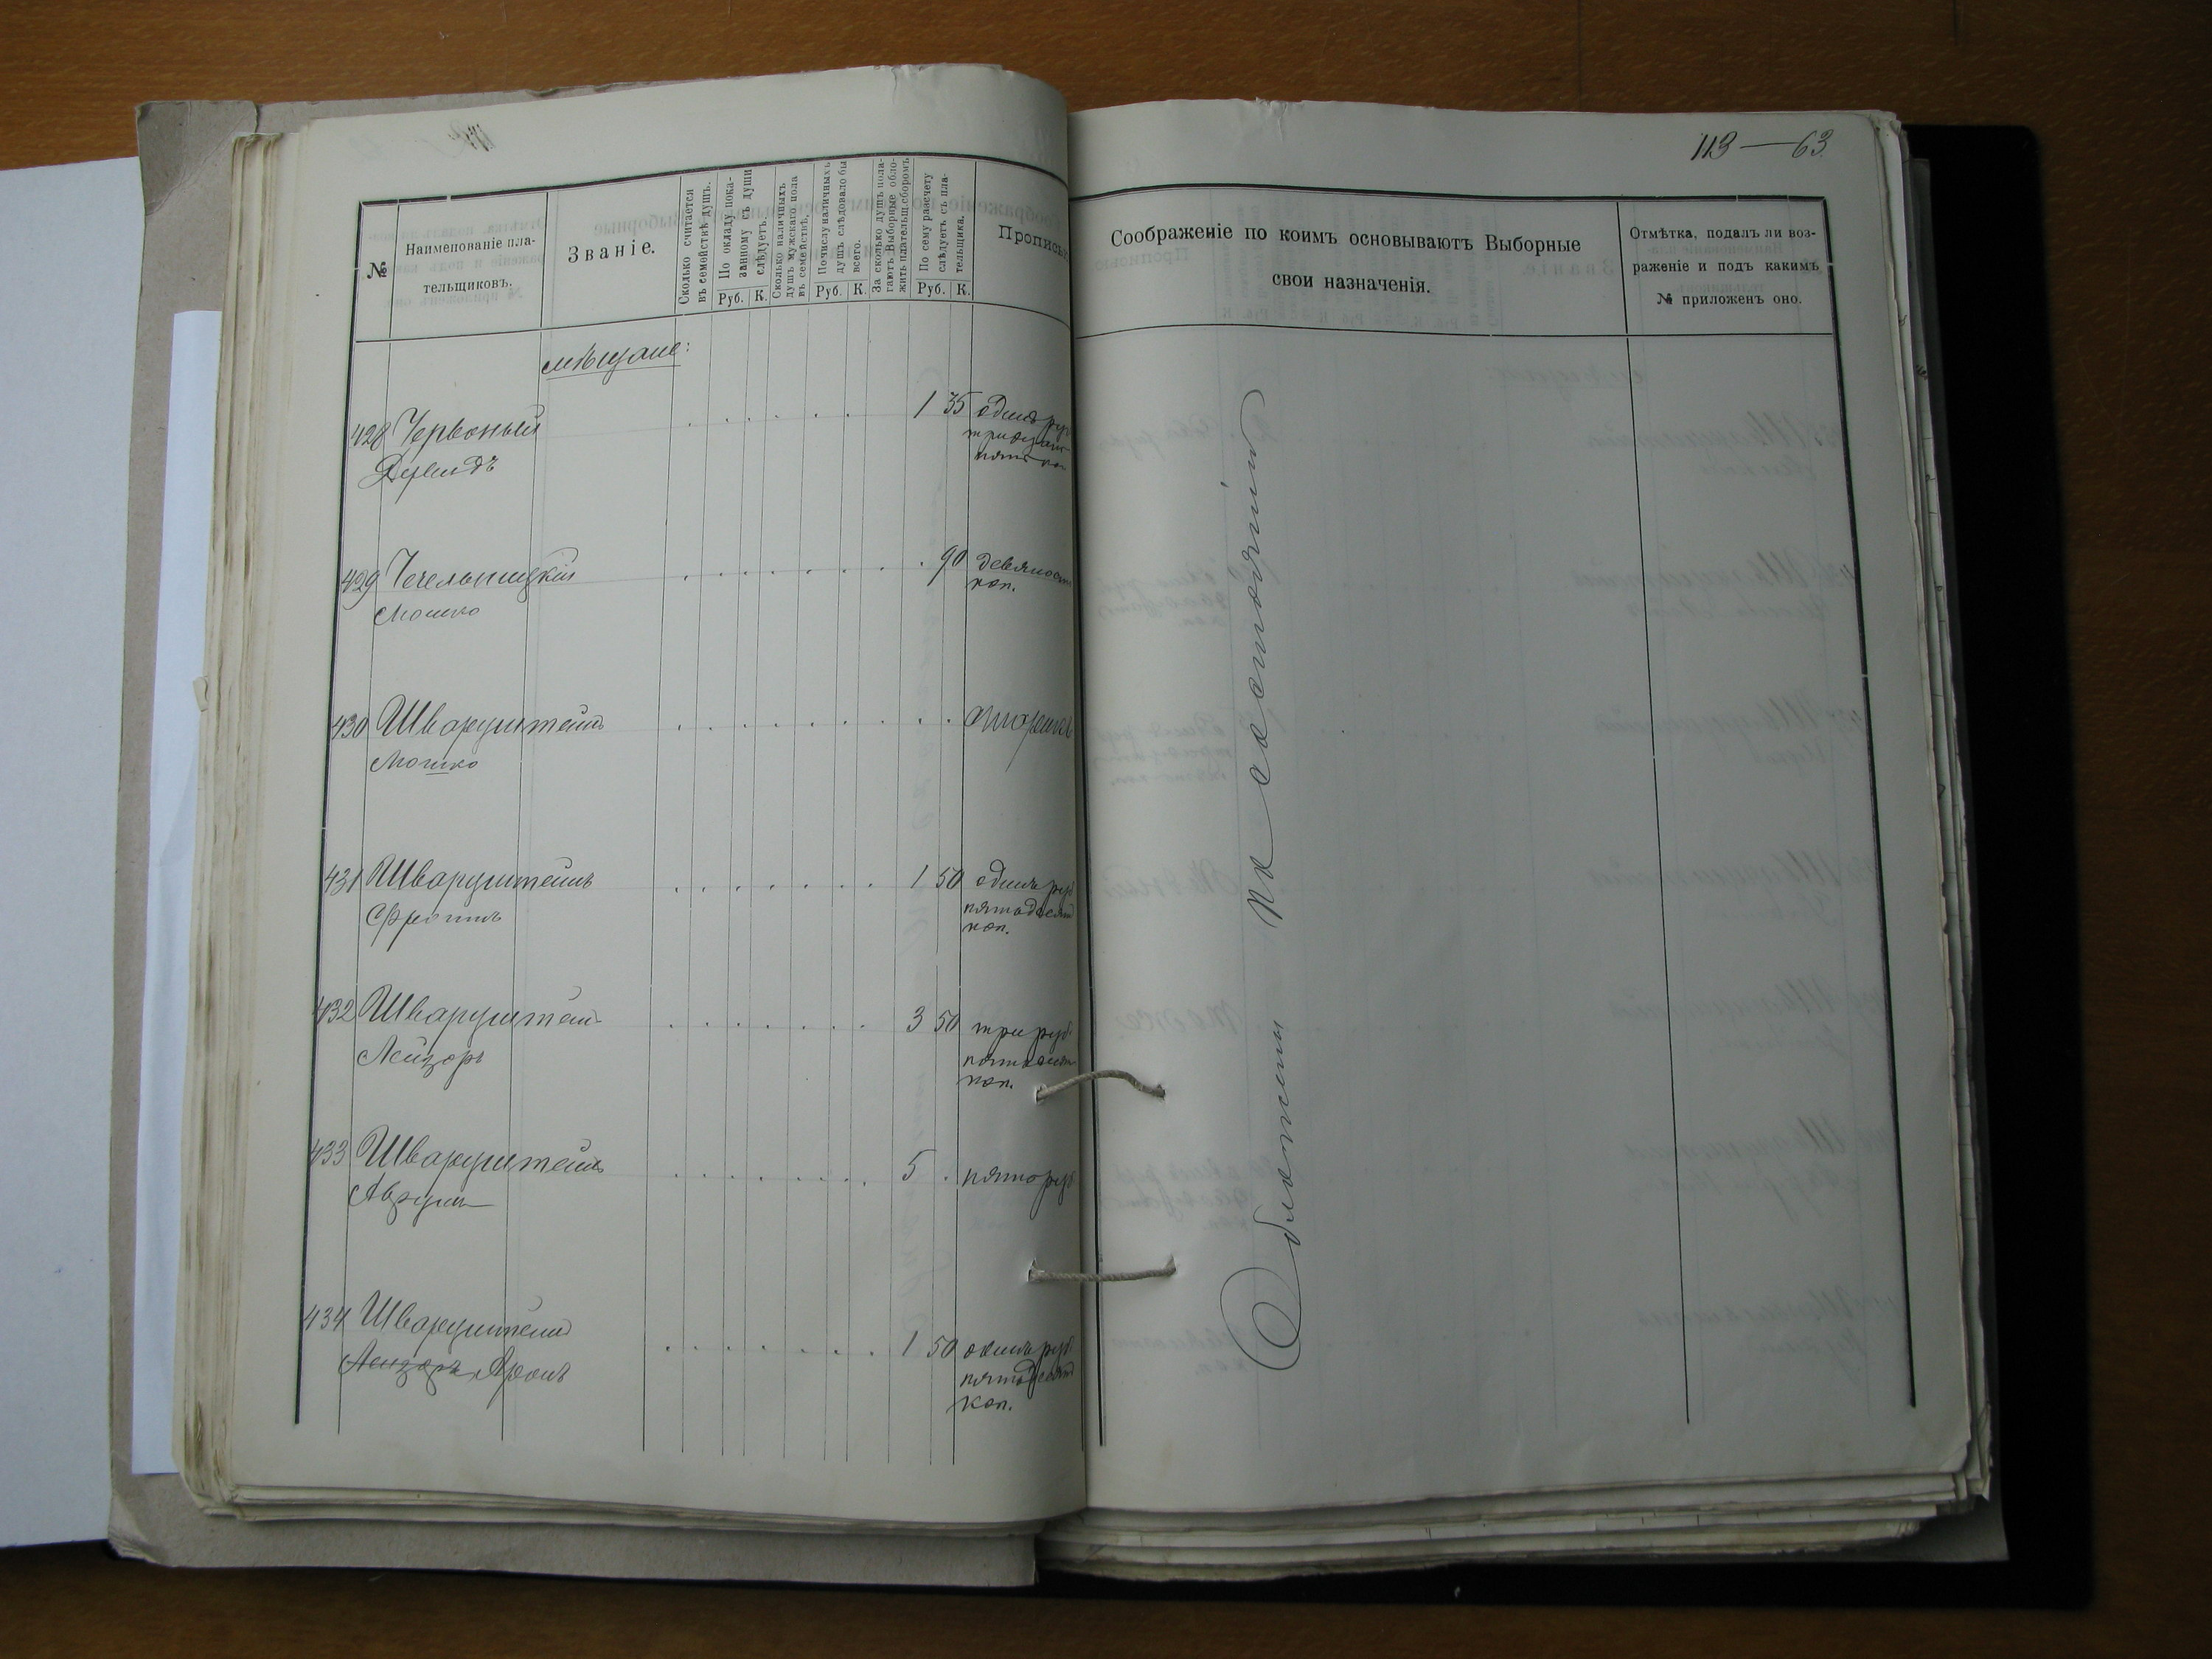 113 — 63
№
Наименованіе пла-
тельщиковъ.
Званіе.
Сколько считается
въ семействѣ душъ.
По окладу пока-
занному съ души
слѣдуетъ.
Руб. К.
Сколько наличныхъ
душъ мужскаго пола
въ семействѣ.
По числу наличныхъ
душъ слѣдовало бы
всего.
Руб. К.
За сколько душъ пола-
гаютъ Выборные обло-
жить плательщ. сборомъ
По сему разсчету
слѣдуетъ съ пла-
тельщика.
Руб. К.
Прописью
Соображеніе по коимъ основываютъ Выборные
свои назначенія.
Отмѣтка, подалъ ли воз-
раженіе и подъ какимъ
№ приложенъ оно.
мѣщане:
428 Червоный 1 35 одинъ руб
тридцать
пять коп
429 Чечельницкій 90 девяносто
Мошко коп.
430 Шварцштейнъ
Мошко
431 Шварцштейнъ 1 50 одинъ руб
Фроимъ пятьдесятъ
коп.
432 Шварцштейн 3 50 три руб
Лейзоръ пятьдесят
коп.
433 Шварцштейнъ 5 . пять руб
Аврумъ
434 Шварцштейнъ 1 50 одинъ руб
Лейзоръ Аронъ пятьдесят
коп.
Обложены по состоянію